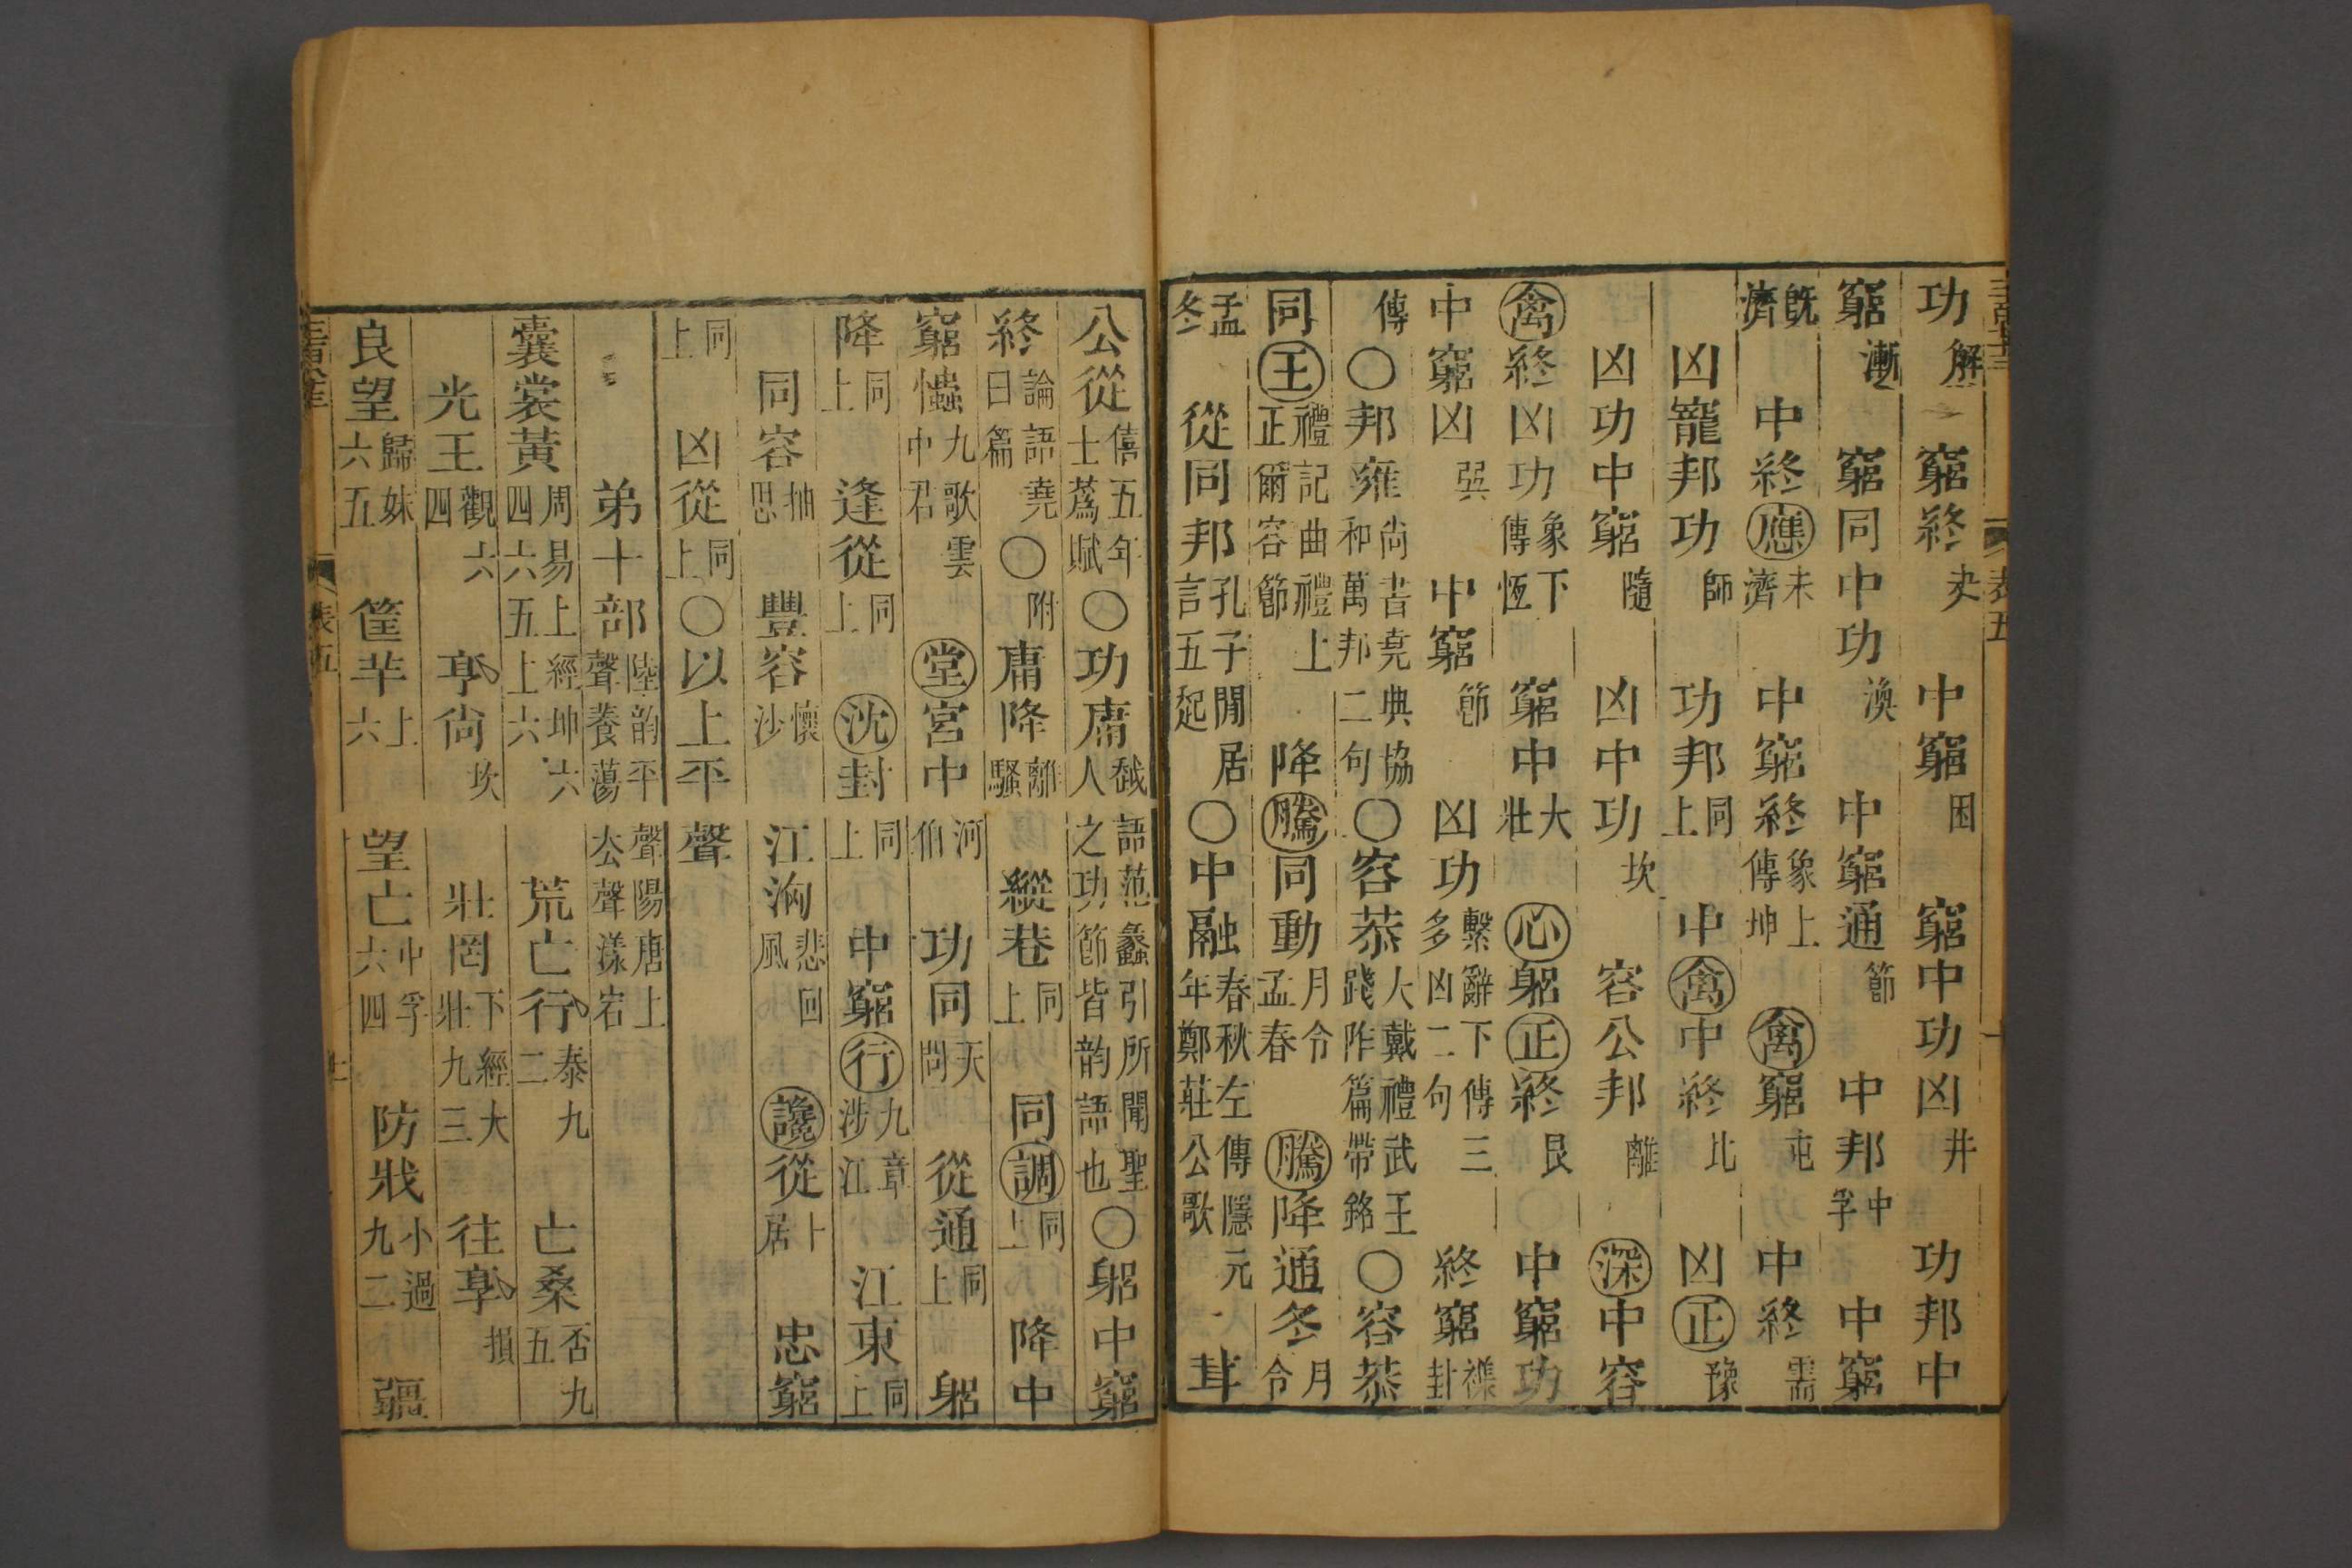 功解　窮終夬　中窮困　窮中功凶井　功邦中
窮漸　窮同中功渙　中窮通節　中邦中孚　中窮
既濟　中終應未濟　中窮終象上傳坤　禽窮屯　中終需
凶寵邦功師　功邦同上　中禽中終比　凶正豫
凶功中窮隨　凶中功坎　容公邦離　深中容
禽終凶功象下傳恆　窮中大壯　心躬正終艮　中窮功
中窮凶巽　中窮節　凶功繫辭下傳三多凶二句　終窮襍封
傳○邦雍尚書堯典協和萬邦二句○容恭大戴禮武王踐阼篇帶銘○容恭
同王禮記曲禮上正爾容節　降騰同動月令孟春　騰降通冬月令
孟冬　從同邦孔子閒居言五起○中融春秋左傳隱元年鄭莊公歌　茸
公從僖五年士蒍賦○功庸越語范蠡引所聞聖人之功節皆韵語也○躬中窮
終論語堯曰篇○附庸降離騷　縱巷同上　同調同上　降中
窮𢥞九歌雲中君　堂宮中河伯　功同天問　從通同上　躬
降同上　逢從同上　沈封同上　中窮行九章涉江　江東同上
同容抽思　豐容懷沙　江洶悲回風　讒從卜居　忠窮
同上　凶從同上○以上平聲
弟十部陸韵平聲陽唐上聲養蕩厺聲漾宕
囊裳黃周易上經坤六四六五上六　荒亡行泰九二　亡桑否九五
光王觀六四　亨尚坎　壯罔下經大壯九三　往亨損
良望歸妹六五　筐羊上六　望亡中孚六四　防戕小過九二　疆
表五